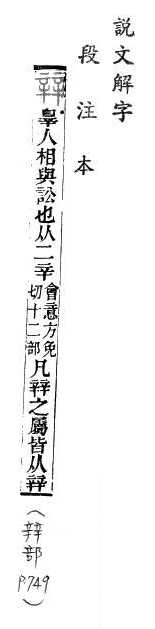 説文解字
段注本
辡 辠人相與訟也从二辛會意方免切十二部凡辡之屬皆从辡
(辡部 P.749)